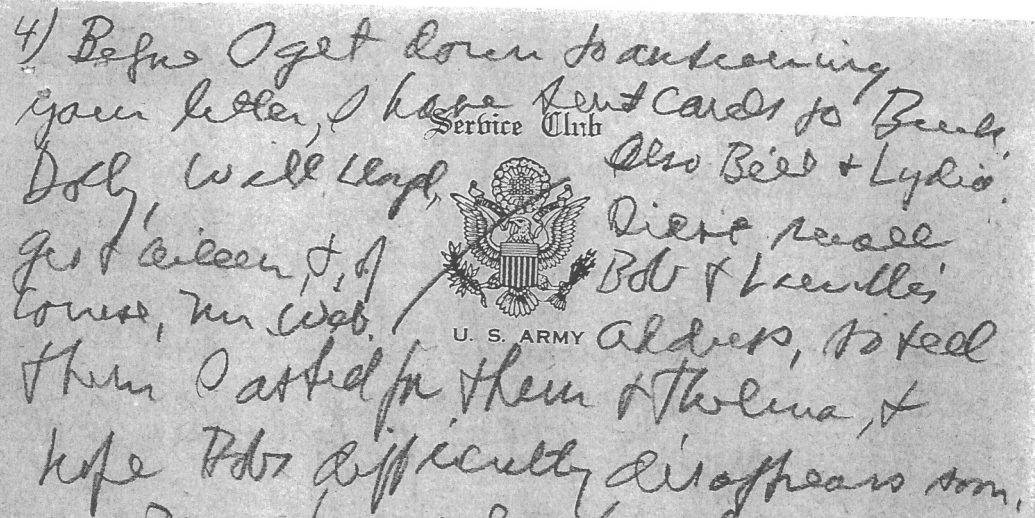 4) Before I get down to answering
your letter, I have sent cards to
Service Club
Dolly, Will Lloyd,
Also Bill & Lydia.
Gus & Eileen, &, of
course, Mr. Web.
Didn't recall
Bob & Lucille's
U. S. ARMY
address, so tell
them I asked for them & Thelma, &
hope Bob's difficulty disappears soon.